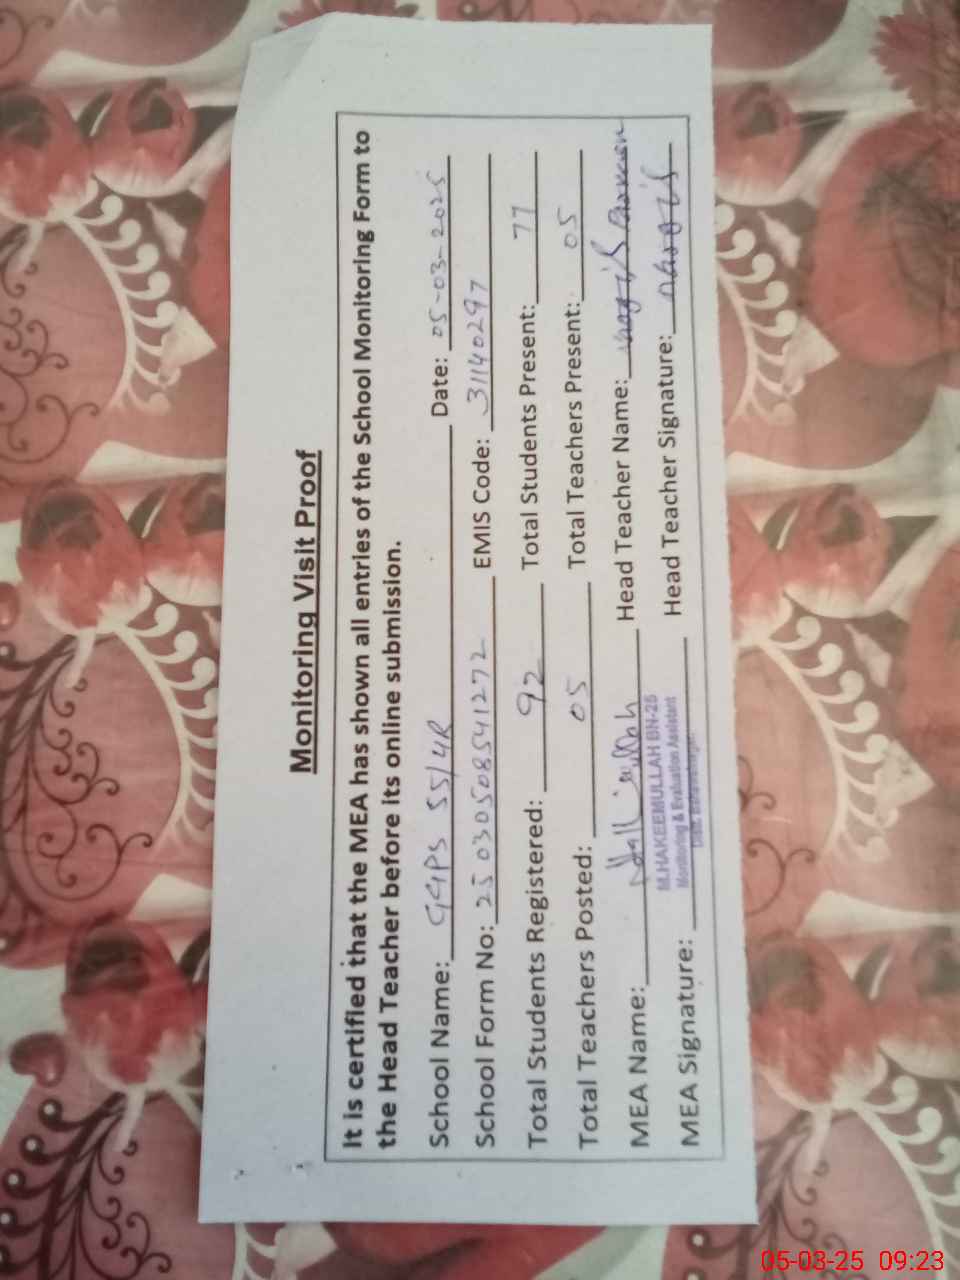 Monitoring Visit Proof
It is certified that the MEA has shown all entries of the School Monitoring Form to
the Head Teacher before its online submission.
School Name: GGPS 55/4R Date: 05-03-2025
School Form No: 25030508541272 EMIS Code: 31140297
Total Students Registered: 92 Total Students Present: 77
Total Teachers Posted: 05 Total Teachers Present: 05
MEA Name: Head Teacher Name: Nargis Parveen
M.HAKEEMULLAH BN-25
Monitoring & Evaluation Assistant
Distt. Bahawalnagar
MEA Signature: Head Teacher Signature: Nargis
05-03-25 09:23